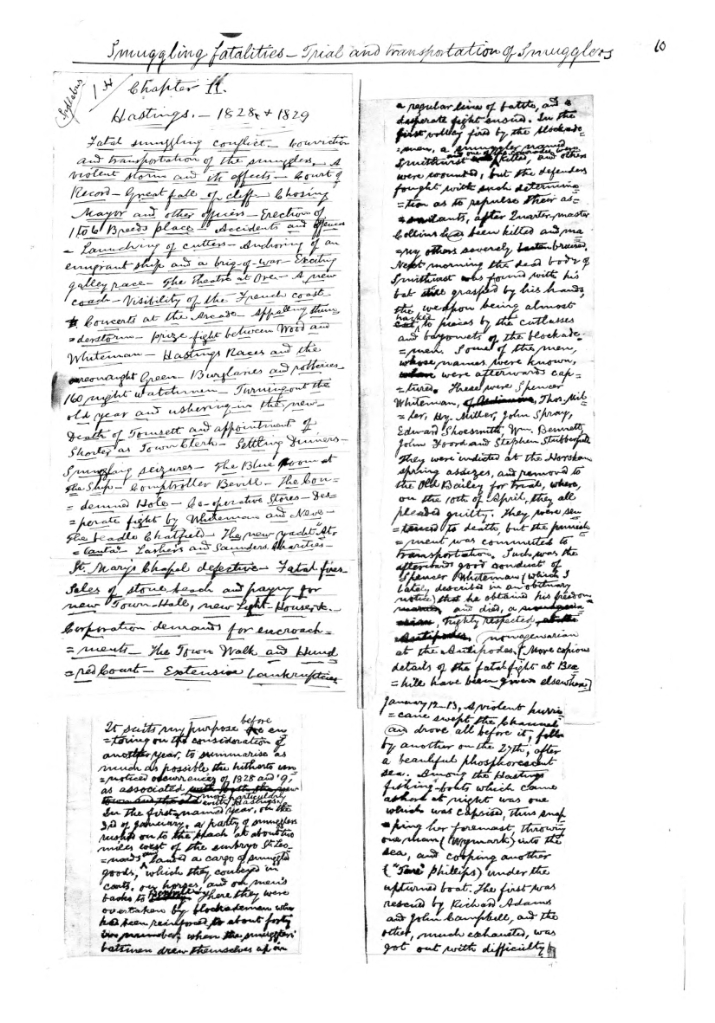 Smuggling fatalities – Trial and transportation of Smugglers
10
Syllabus
Chapter II.
Hastings. – 1828, + 1829
Fatal smuggling conflict – Conviction
and transportation of the smugglers – A
violent storm and its effects – Court of
Record – Great fall of cliff – Chosing
Mayor and other officers – Erection of
1 to 6 Breeds place – Accidents and
– Launching of cutters – Anchoring of an
emigrant ship and a brig-of-war – Exciting
galley race – The Theatre at Ore – A new
coach – Visibility of the French coast
Concerts at the Arcade – Appalling thun=
=derstorm – prize fight between Wood and
Whiteman – Hastings Races and the
Green – Burglaries and robberies
160 night watchmen – Turning out the
old year and ushering in the new –
Death of Tomsett and appointment of
Shorter as Town Clerk – Settling Dinners –
Smuggling seizures – The Blue Room at
the Ship – Comptroller Bevill – The Con=
=demned Hole – Co-operative Stores – Des=
=perate fight by Whiteman and Neve –
The beadle Chatfield – The new yacht "At=
=lanta" – Lasher's and Saunders Charities –
St. Mary's Chapel defective – Fatal fires
Sales of stone beach and paying for
new Town Hall, new Light-House, &c. –
Corporation demands for encroach=
=ments – The Town Walk and Hund=
=red Court – Extensive bankruptcies
It suits my purpose before en
=tering on the consideration of
another year, to summarise as
much as possible the hitherto un
=noticed occurrences of 1828 and '9,
as associated more particularly
with Hastings.
In the first-named year, on the
3d of January, a party of smugglers
rushed on to the beach at about two
miles west of the embryo St. Leo=
=nards & landed a cargo of smuggled
goods, which they conveyed in
carts, on horses, and on men's
backs to There they were
overtaken by blockademen who
had been reinforced to about forty
in number, when the smugglers'
batmen drew themselves up in
a regular line of battle, and a
desperate fight ensued. In the
first volley fired by the blockade
=men, a smuggler named
Smithurst was killed, and others
were wounded, but the defenders
fought with such determina=
=tion as to repulse their as=
=sailants, after Quarter-master
Collins had been killed and ma=
=ny others severely bruised.
Next morning the dead body of
Smithurst was found with his
bat still grasped by his hands,
the weapon being almost
hacked to pieces by the cutlasses
and bayonets of the blockade=
=men. Some of the men,
whose names were known,
were afterwards cap=
=tured. These were Spencer
Whiteman, Thos. Mil=
=ler, Hy. Miller, John Spray,
Edward Shoesmith, Wm. Bennett,
John Ford and Stephen Stubberfield
They were indicted at the Horsham
spring assizes, and removed to
the Old Bailey for trial, where,
on the 10th of April, they all
pleaded guilty. They were sen
=tenced to death, but the punish
=ment was commuted to
transportation. Such was the
afterward good conduct of
Spencer Whiteman (which I
lately described in an obituary
notice) that he obtained his freedom
and died, a
highly respected,
nonagenarian
at the Antipodes. (More copious
details of the fatal fight at Bex=
=hill have been given elsewhere)
January 12–13, a violent hurri
=cane swept the Channel
and drove all before it, folld
by another on the 27th, after
a beautiful phosphorescent
sea. Among the Hastings
fishing-boats which came
ashore at night was one
which was capsized, thus snap
=ping her foremast, throwing
one man (Wymark) into the
sea, and cooping another
Phillips) under the
upturned boat. The first was
rescued by Richard Adams
and John Campbell, and the
other, much exhausted, was
got out with difficulty